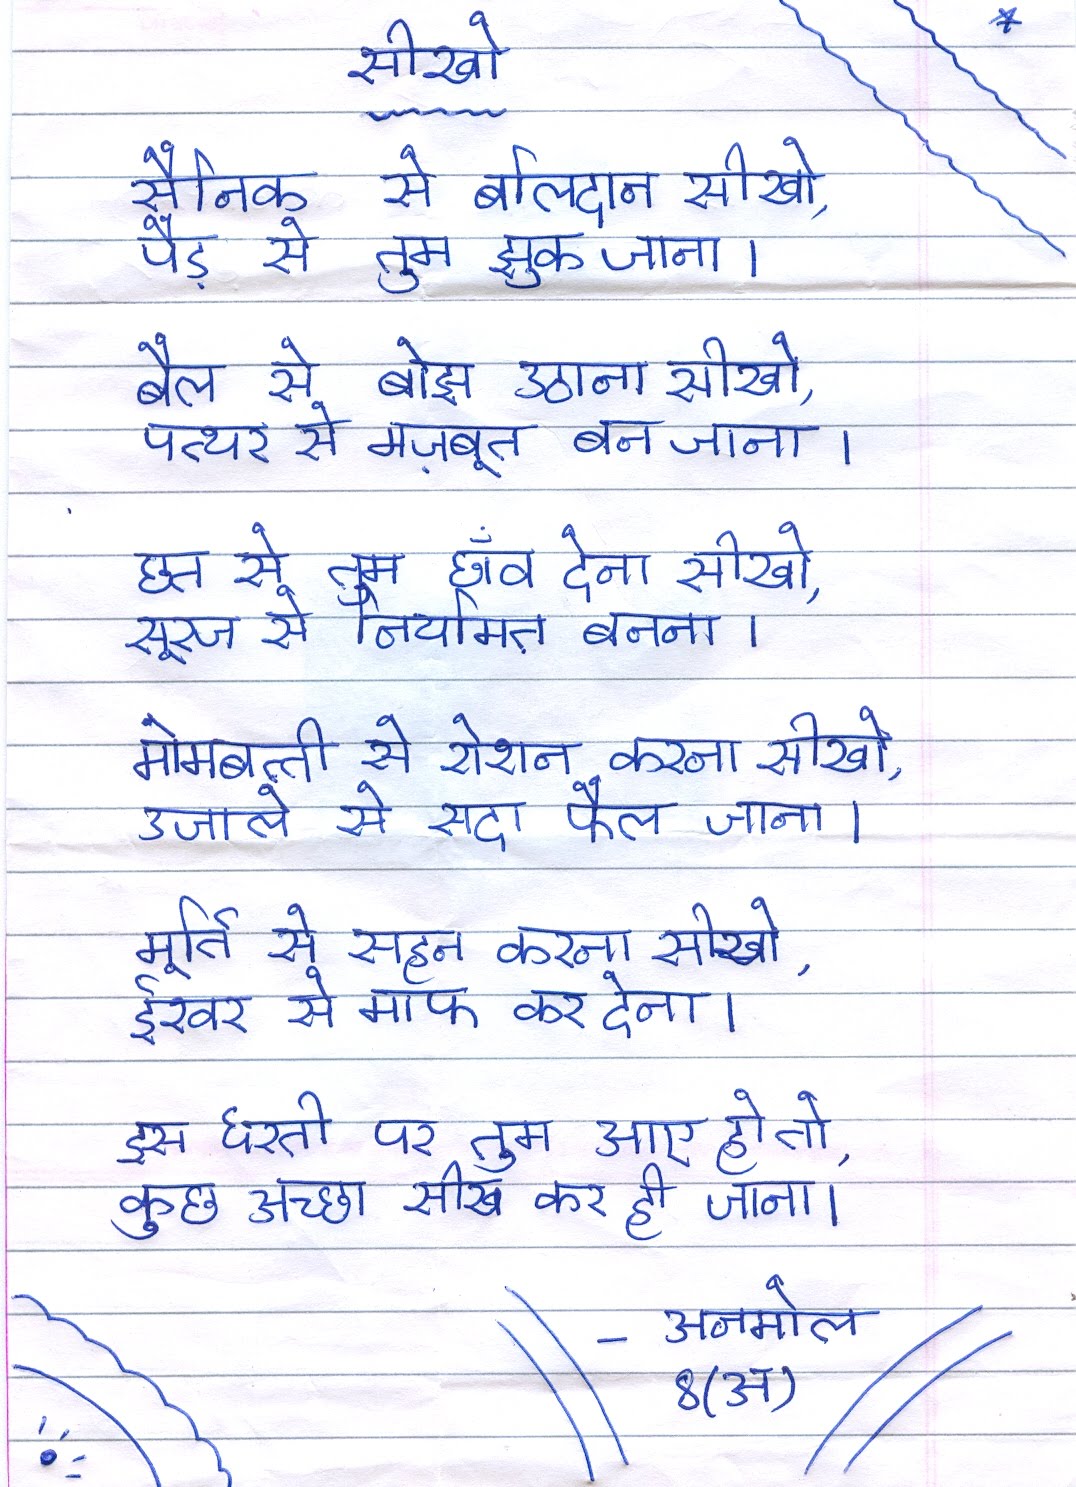 सीखो
सैनिक से बलिदान सीखो,
पैड़ से तुम झुक जाना।
बैल से बोझ उठाना सीखो,
पत्थर से मज़बूत बन जाना।
छत से तुम छाँव देना सीखो,
सूरज से नियमित बनना।
मोमबत्ती से रोशन करना सीखो,
उजाले से सदा फैल जाना।
मूर्ति से सहन करना सीखो,
ईश्वर से माफ कर देना।
इस धरती पर तुम आए हो तो,
कुछ अच्छा सीख कर ही जाना।
- अनमोल
8(अ)